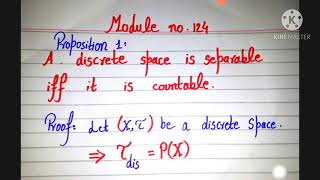 Module no. 124
Proposition 1:
A discrete space is separable
iff it is countable.
Proof: Let (X, τ) be a discrete space.
⇒ τ_dis = P(X)
Made with
KINEMASTER